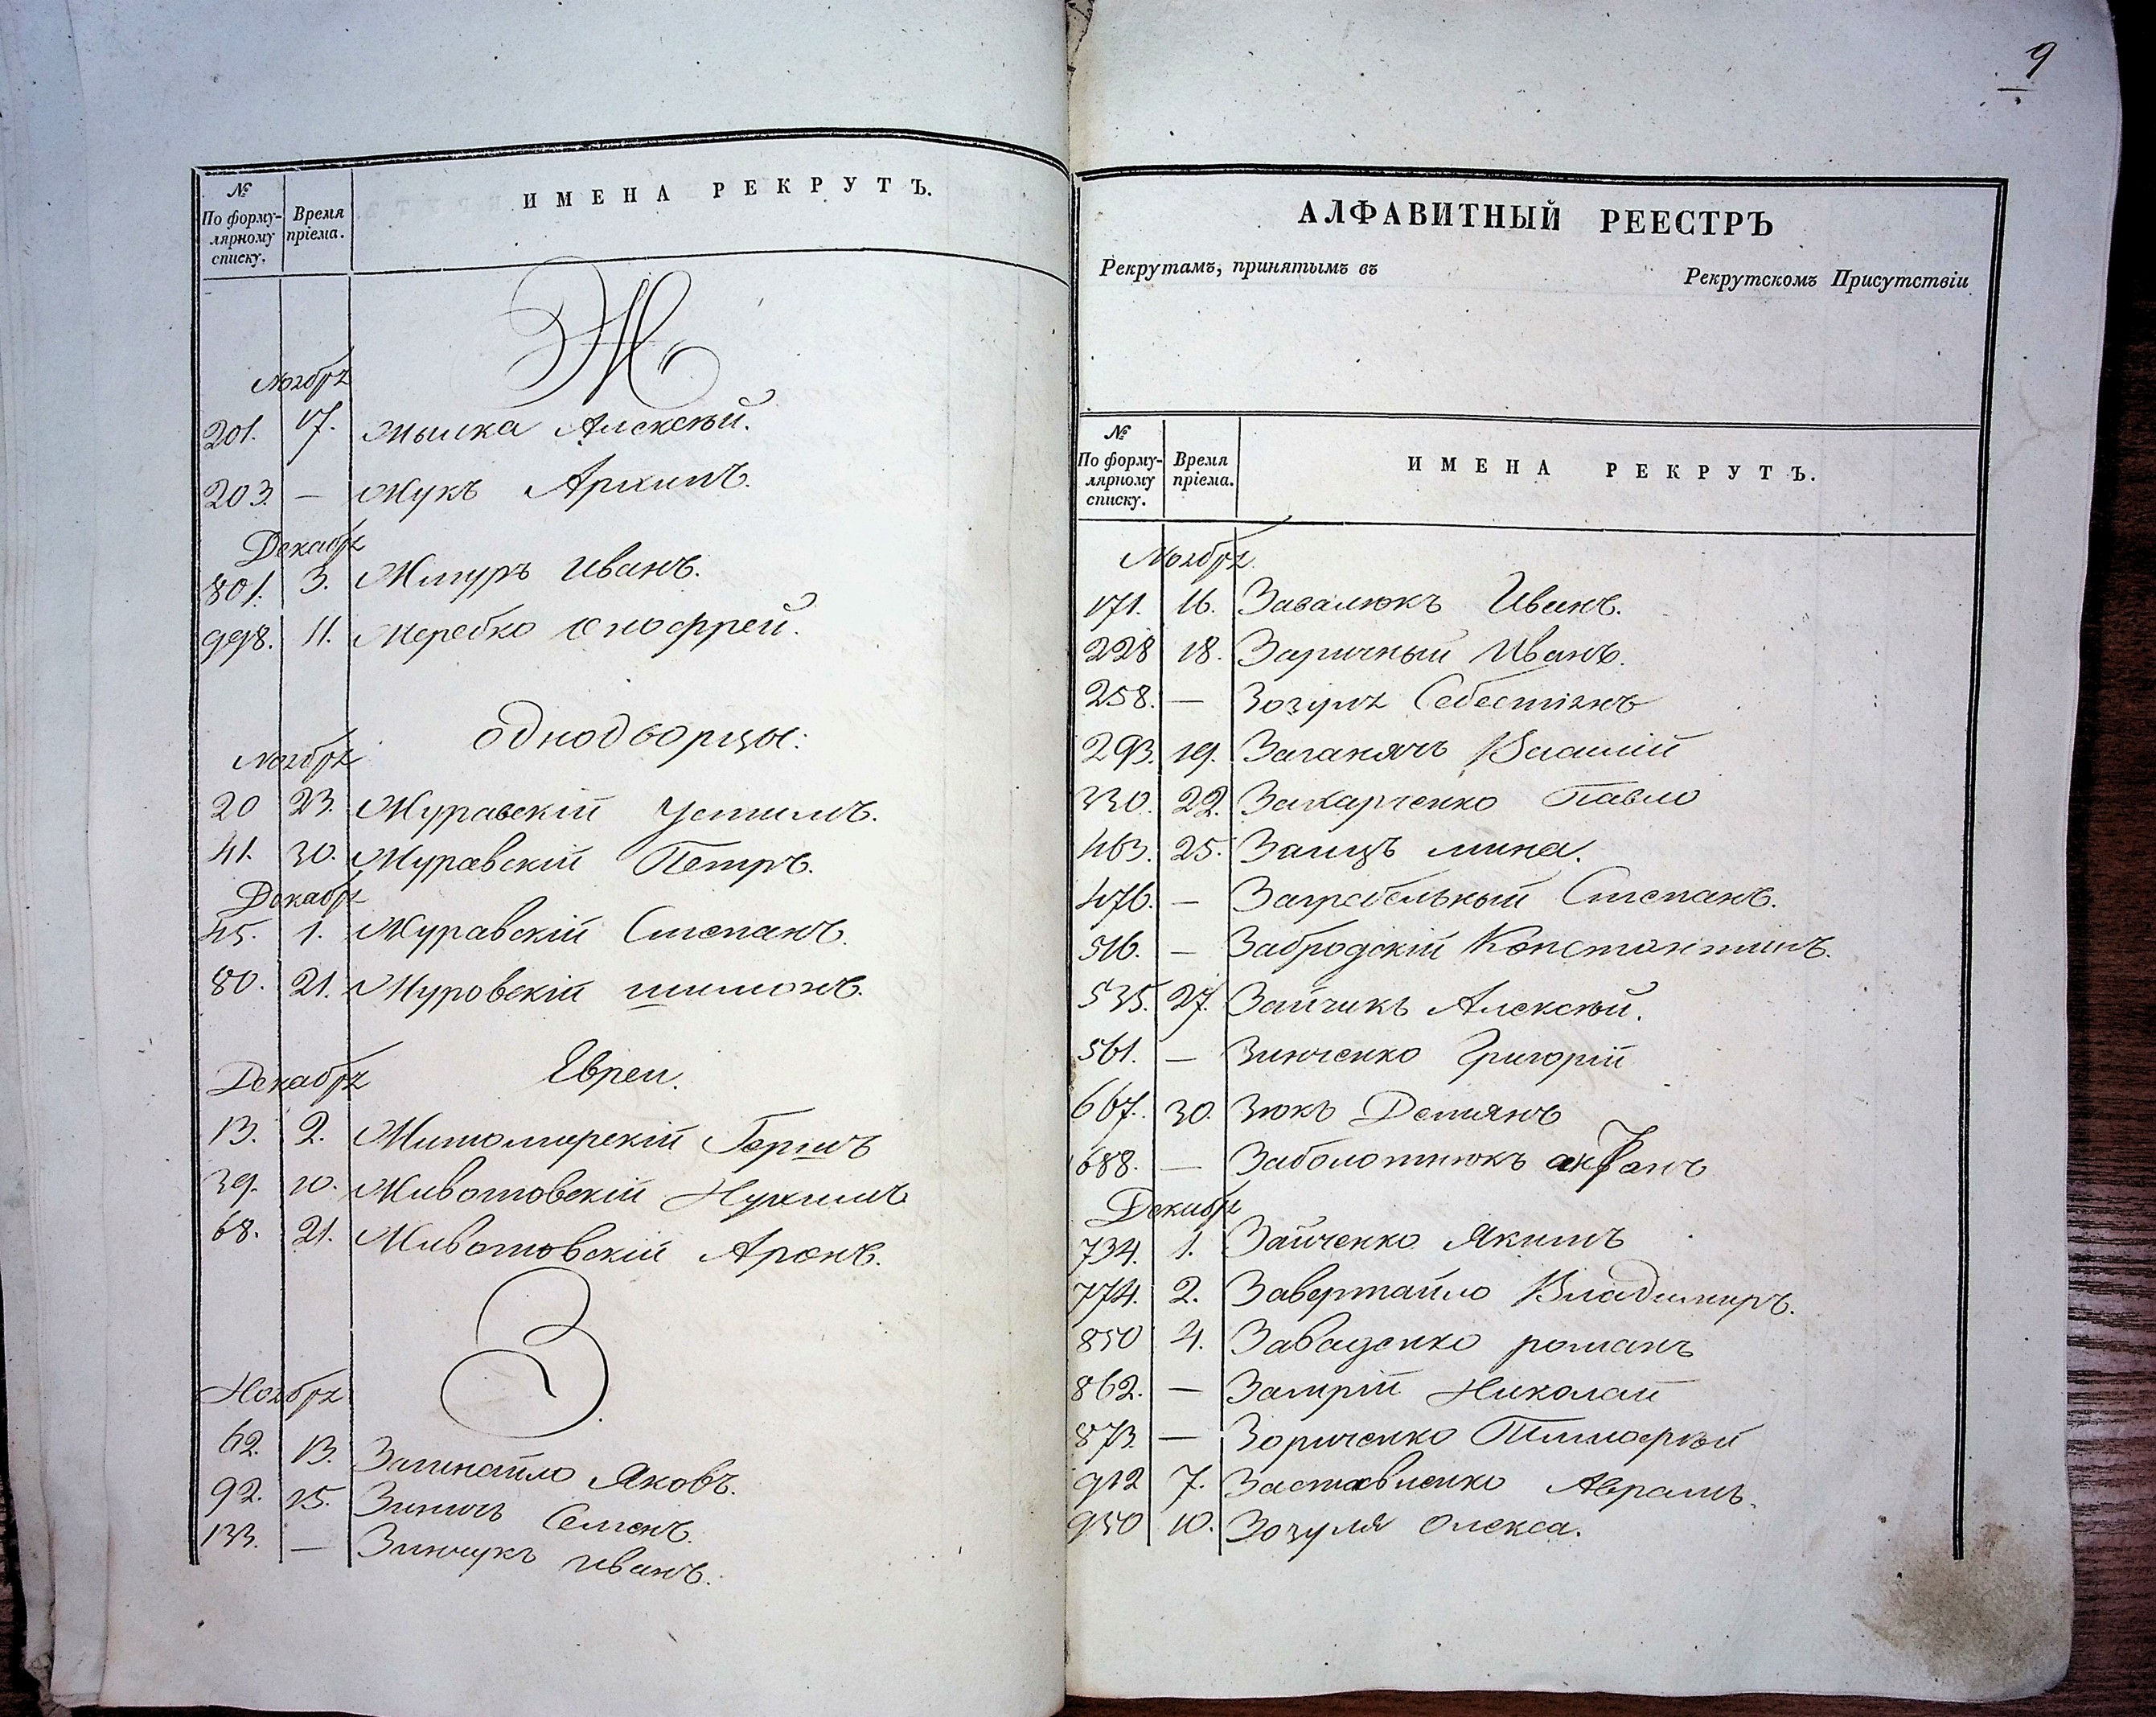 №
По форму-
лярному
списку.
Время
пріема.
ИМЕНА РЕКРУТЪ.
Ж
Ноября
201. 17. Алексѣй.
203. — Жукъ Архипъ.
Декабря
801. 3. Жмуръ Иванъ.
998. 11. Жеребко Онофрей.
однодворцы:
Ноября
20 23. Журавскій Устимъ.
41. 30. Журавскій Петръ.
Декабря
45. 1. Журавскій Степанъ.
80. 21. Журовскій шимонъ.
Евреи.
Декабря
13. 2. Житомирскій Гершъ
39. 10. Животовскій Нухимъ
68. 21. Животовскій Аронъ.
З.
Ноября
62. 13. Яковъ.
92. 15. Зиничъ Семенъ.
133. — Зинчукъ иванъ.
9
АЛФАВИТНЫЙ РЕЕСТРЪ
Рекрутамъ, принятымъ въ Рекрутскомъ Присутствіи
№
По форму-
лярному
списку.
Время
пріема.
ИМЕНА РЕКРУТЪ.
Ноября
171. 16. Завалюкъ Иванъ.
228 18. Заричный Иванъ.
258. — Зозуля Себестіянъ
293. 19. Василій
330. 22. Захарченко Павло
463. 25. Заицъ мина.
476. — Загребельный Степанъ.
516. — Забродскій Константинъ.
535. 27. Зайчикъ Алексѣй.
561. — Зинченко Григорій
667. 30. Зюкъ Демянъ
688. — Заболотнюкъ
Декабря
734. 1. Зайченко Якимъ
774. 2. Завертайло Владимиръ.
850 4. романъ
862. — Николай
873. — Зориченко Тимофѣй
912 7. Заставненко Аврамъ.
950 10. Зозуля Олекса.